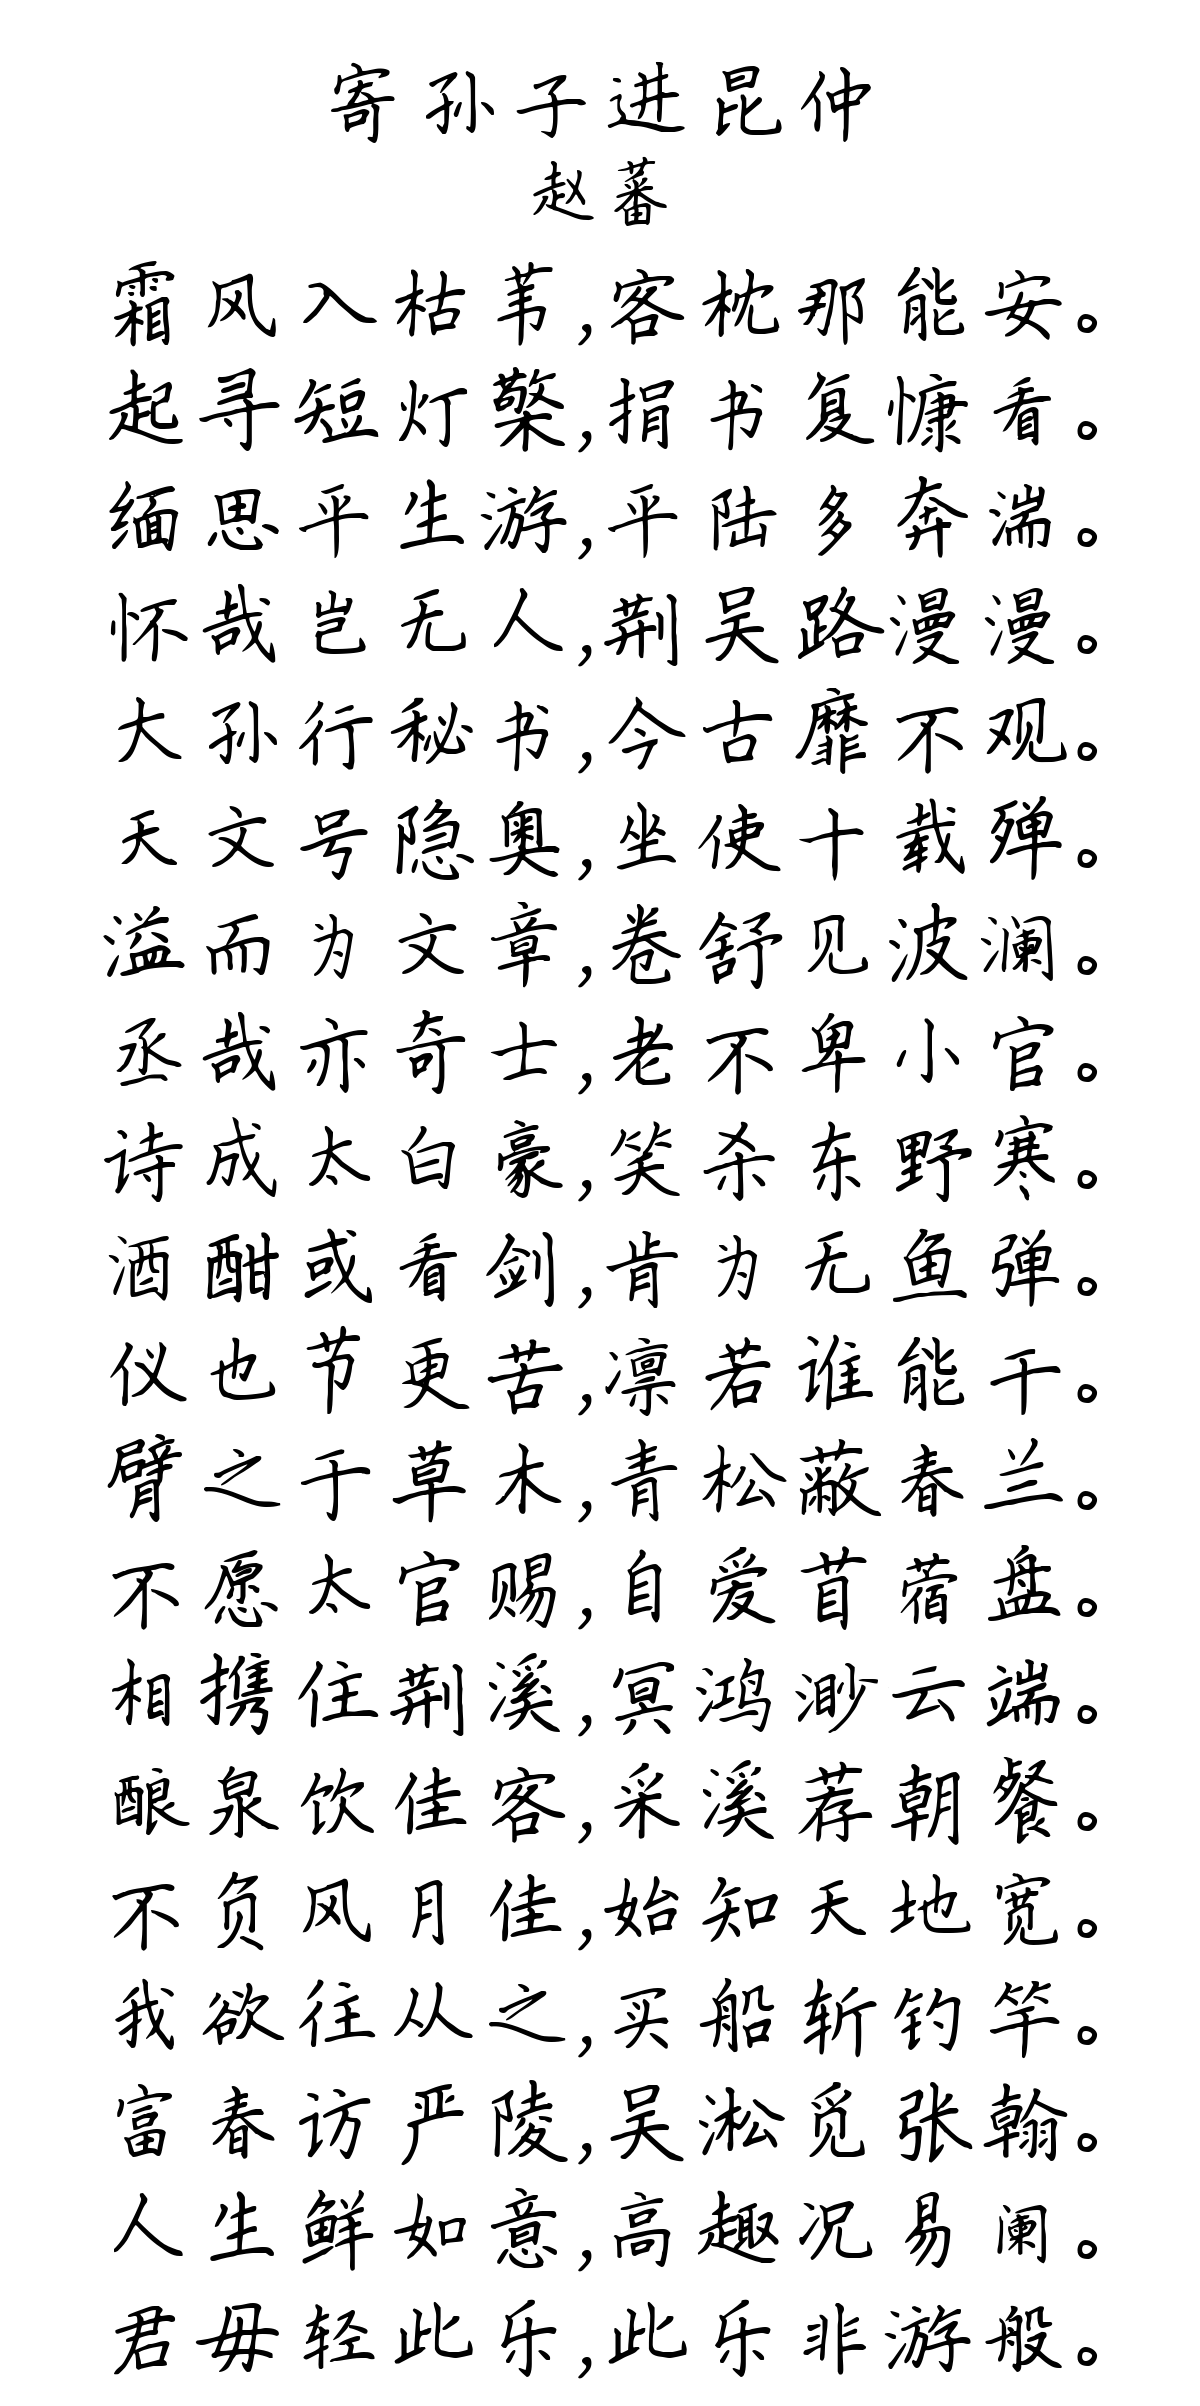 寄孙子进昆仲
赵蕃
霜风入枯苇,客枕那能安。
起寻短灯檠,捐书复慵看。
缅思平生游,平陆多奔湍。
怀哉岂无人,荆吴路漫漫。
大孙行秘书,今古靡不观。
天文号隐奥,坐使十载殚。
溢而为文章,卷舒见波澜。
丞哉亦奇士,老不卑小官。
诗成太白豪,笑杀东野寒。
酒酣或看剑,肯为无鱼弹。
仪也节更苦,凛若谁能干。
臂之于草木,青松蔽春兰。
不愿太官赐,自爱苜蓿盘。
相携住荆溪,冥鸿渺云端。
酿泉饮佳客,采溪荐朝餐。
不负风月佳,始知天地宽。
我欲往从之,买船斩钓竿。
富春访严陵,吴淞觅张翰。
人生鲜如意,高趣况易阑。
君毋轻此乐,此乐非游般。